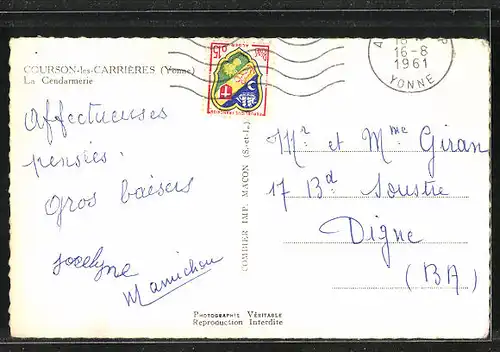 COURSON-les-CARRIÈRES (Yonne)
La Gendarmerie
Affectueuses
pensées.
gros baisers
Jocelyne
Mamichou
COMBIER IMP. MACON (S.-et-L.)
0,15
16-8
1961
YONNE
Mr et Mme Giran
17 Bd Soustre
Digne
(BA)
PHOTOGRAPHIE VÉRITABLE
Reproduction Interdite